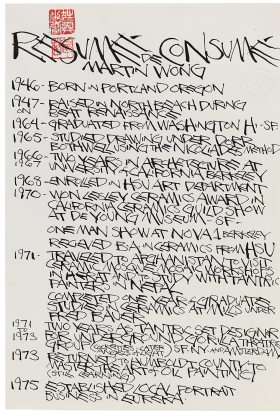 RESUMÉ DE CONSUMÉ
MARTIN WONG
1946- BORN IN PORTLAND OREGON
1947- RAISED IN NORTH BEACH DURING
ON BEAT RENAISSANCE
1964- GRADUATED FROM WASHINGTON H-SF
1965- STUDIED DRAWING UNDER DOREY
BOTHWELL USING THE NICOLAIDES METHOD
1966- TWO YEARS IN ARCHETECTURE AT
1967 UNIVERSITY OF CALIFORNIA BERKELEY
1968- ENROLLED IN HSU ART DEPARTMENT
1970- WON LESLEY CERAMICS AWARD IN
CALIFORNIA CERAMICS GUILD SHOW
AT DE YOUNG MUSEUM SF
ONE MAN SHOW AT NOVA 1 BERKELEY
RECEIVED BA IN CERAMICS FROM HSU
1971- TRAVELED TO AFGHANISTAN TO VISIT
CERAMIC
AND INDIA TO STUDY WITH TANTRIC
PAINTERS IN NEPAL
COMPLETED ONE YEAR GRADUATE
STUDIES IN CERAMICS AT HSU UNDER
REESE BULLEN
1971 TWO YEARS AS TANTRIC SET DESIGNER
1973 THEATRE
GROUP SF NY AND AMSTERDAM
1973 RETURNS TO HUMBOLDT COUNTY TO
ART OF OIL PAINTING
1975 ESTABLISHED LOCAL PORTRAIT
BUSINESS IN EUREKA